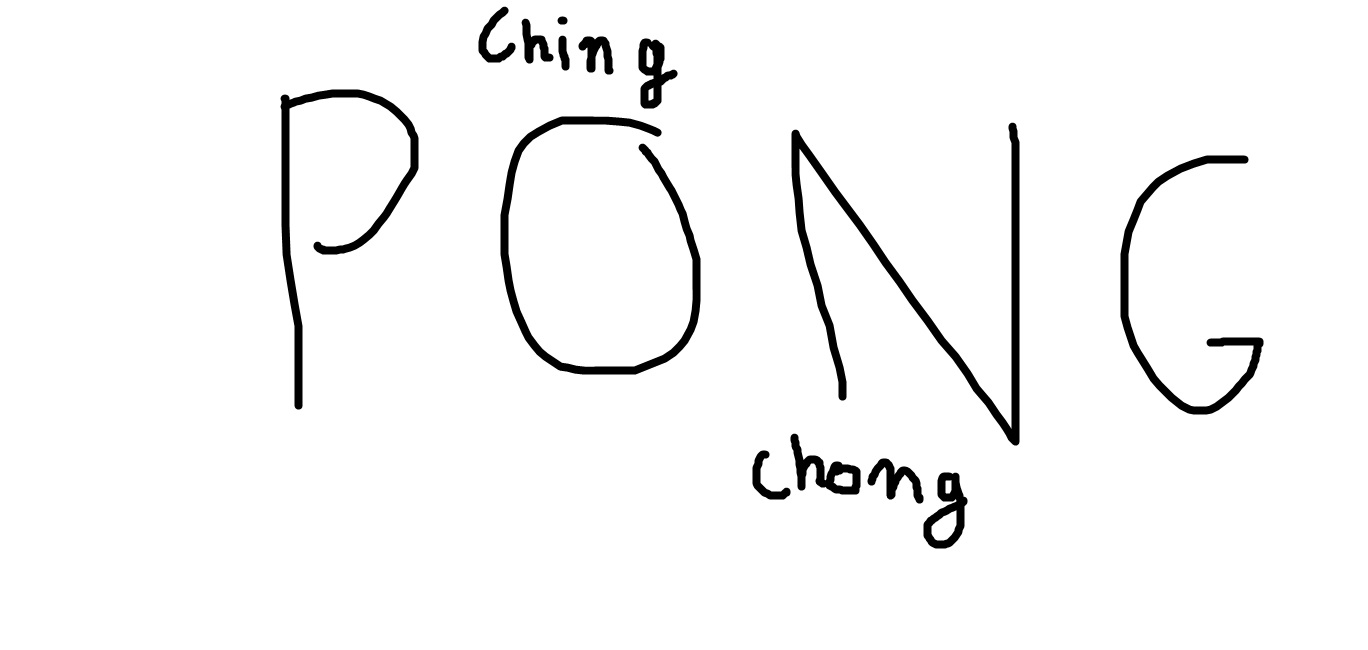 Ching
PONG
chong